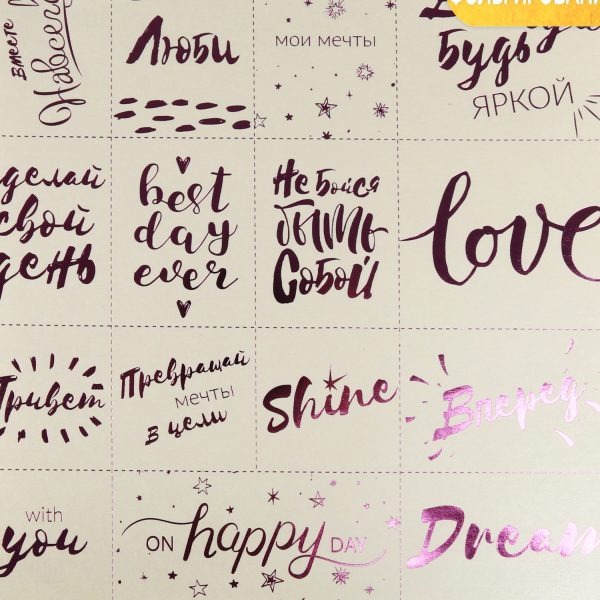 вместе
Навсегда
Люби
мои мечты
Будь
ЯРКОЙ
сделай
свой
день
best
day
ever
Не бойся
быть
Собой
love
Привет
Превращай
мечты
в цели
Shine
Вперед
with
you
ON happy DAY
Dream